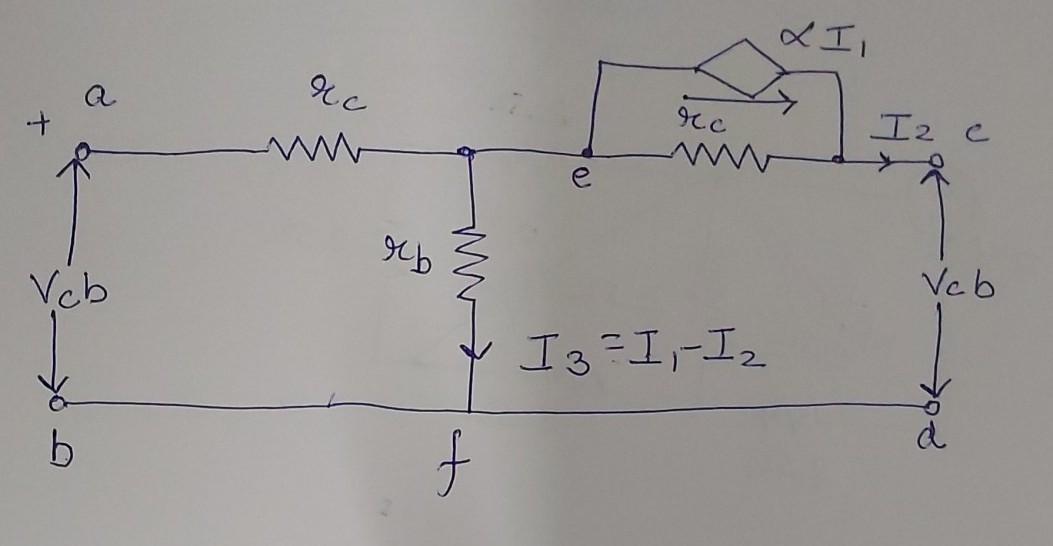 ∝ I₁
a
+
r_c
r_c
I₂ c
e
r_b
V_cb
V_cb
I₃ = I₁ - I₂
b
f
d